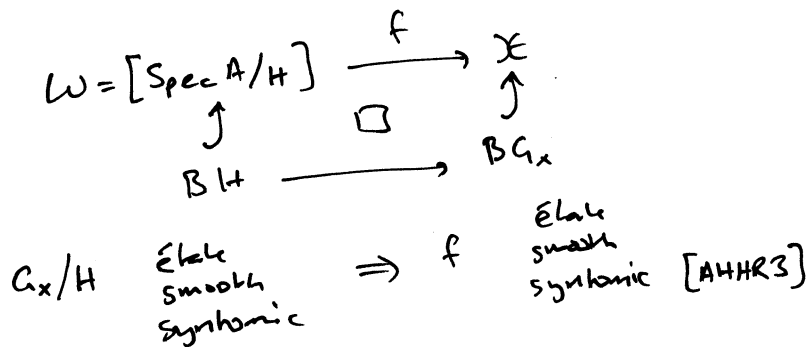 f
W = [Spec A/H] ⟶ 𝒳
↪ □ ↪
BH ⟶ BGₓ
Gₓ/H étale smooth syntomic ⇒ f étale smooth syntomic [AHHR3]